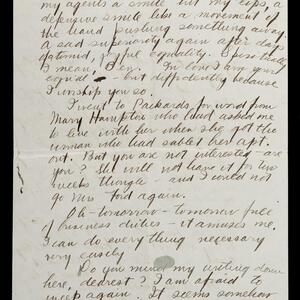 my agents a smile but my lips, a
defensive smile like a movement of
the hand pushing something away.
a sad superiority again after days
of timid, joyful equality.
I mean, Ben. In love I am your
equal - but differently because
I worship you so.
I went to Packards, for word from
Mary Hampton who had asked me
to live with her when she got the
woman who had sublet her apt.
out. But you are not interested - are
you? She will not have it for two
weeks though - and I could not
go Mrs. Ford again.
Oh - tomorrow - tomorrow full
of business duties - it amuses me,
I can do everything necessary
very easily
Do you mind my writing down
here, dearest? I am afraid to
weep again. It seems somehow